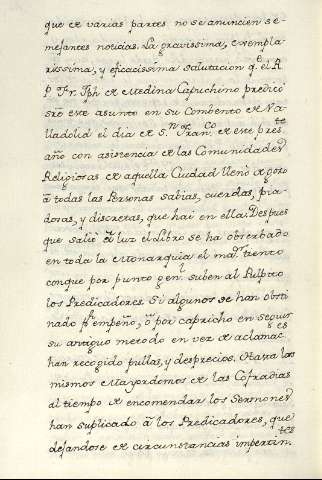 que de varias partes no se anuncien se-
mejantes noticias. La gravissima, exempla-
rissima, y eficacissima salutacion q.e el R.
P. Fr. Jph de Medina Capuchino predicó
sre este asunto en su Combento de Va-
lladolid el dia de S.n Fran.co de este pres.te
año con asistencia de las Comunidades
Religiosas de aquella Ciudad llenó de gozo
à todas las Personas sabias, cuerdas, pia-
dosas, y discretas, que hai en ella. Despues
que salió à luz el Libro se ha observado
en toda la Monarquia el ma.r tiento
conque por punto gen.l suben al Pulpito
los Predicadores. Si algunos se han obsti-
nado p.r empeño, ò por capricho en seguir
su antiguo metodo en vez de aclamac.es
han recogido pullas, y desprecios. Hasta los
mismos Mayordomos de las Cofradias
al tiempo de encomendar los Sermones
han suplicado à los Predicadores, que
dejandose de circunstancias impertin.tes